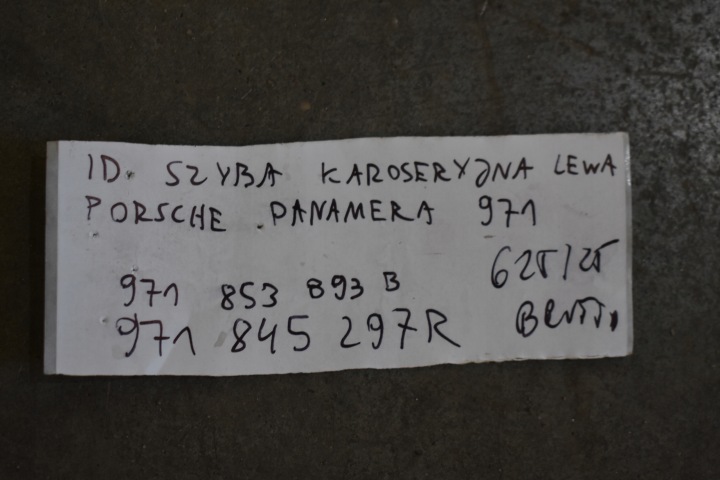 ID. SZYBA KAROSERYJNA LEWA
PORSCHE PANAMERA 971
625/25
971 853 893 B
BRUTTO
971 845 297R